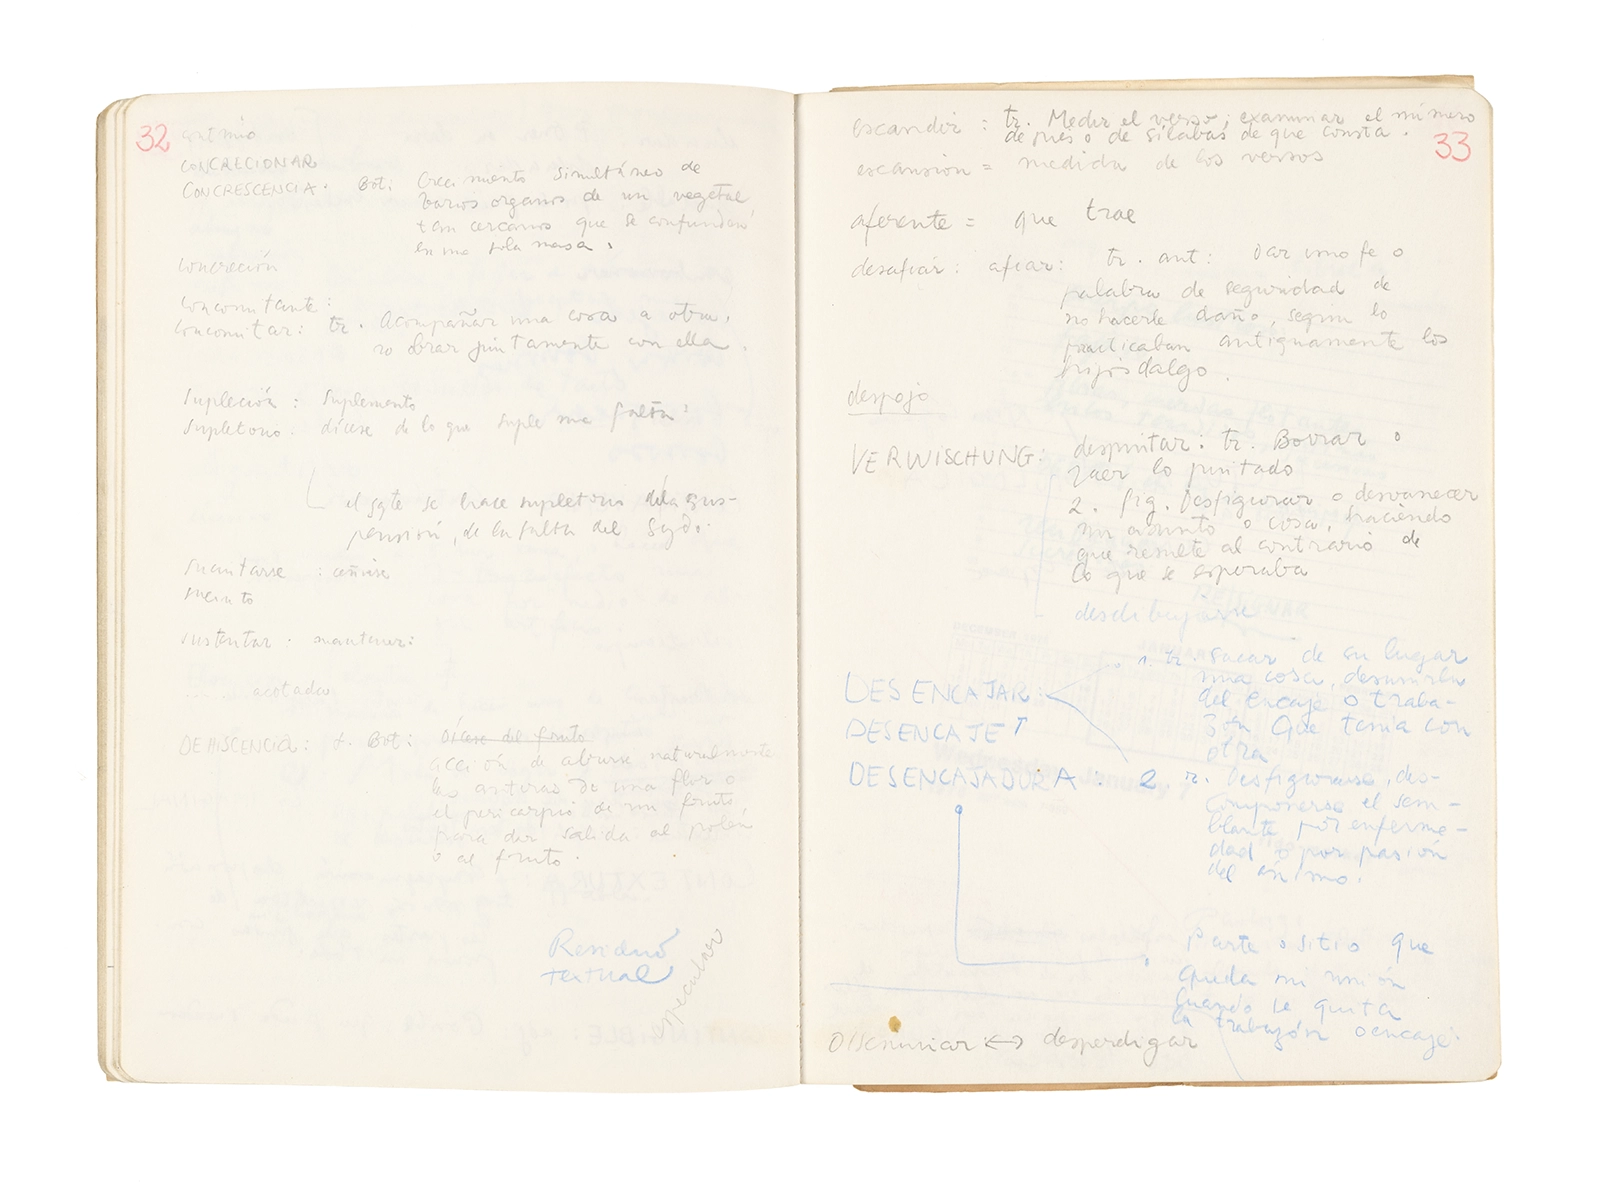 32
CONCRECIONAR
CONCRESCENCIA. Bot: Crecimiento simultáneo de
varios órganos de un vegetal
tan cercanos que se confunden
en una sola masa.
Concreción
Concomitante:
Concomitar: tr. Acompañar una cosa a otra,
o obrar juntamente con ella.
Supleción: Suplemento
Supletorio. dícese de lo que suple una falta:
el sgte se hace supletorio de la sus-
pensión, de la falta del sgdo.
: ceñirse
sucinto
sustentar. mantener:
...... acotada
DEHISCENCIA: f. Bot: Dícese del fruto
acción de abrirse naturalmente
las anteras de una flor o
el pericarpio de un fruto,
para dar salida al polen
o al fruto.
Residuo
textual
especular
33
escandir: tr. Medir el verso; examinar el número
de pies o de sílabas de que consta.
escansión = medida de los versos
aferente = que trae
desafiar: afiar: tr. ant: Dar uno fe o
palabra de seguridad de
no hacerle daño, segun lo
practicaban antiguamente los
hijosdalgo.
despojo
VERWISCHUNG: despintar: tr. Borrar o
raer lo pintado
2. fig. Desfigurar o desvanecer
un asunto o cosa, haciendo
que resulte al contrario de
lo que se esperaba
desdibujarse
DESENCAJAR: 1. tr. sacar de su lugar
una cosa, desunirla
del encaje o traba-
zón que tenía con
otra
DESENCAJE ↑
DESENCAJADURA: 2. r. Desfigurarse, des-
componerse el sem-
blante por enferme-
dad o por pasión
del ánimo.
Parte o sitio que
queda sin unión
cuando se quita
la trabazón o encaje.
Diseminar <-> desperdigar